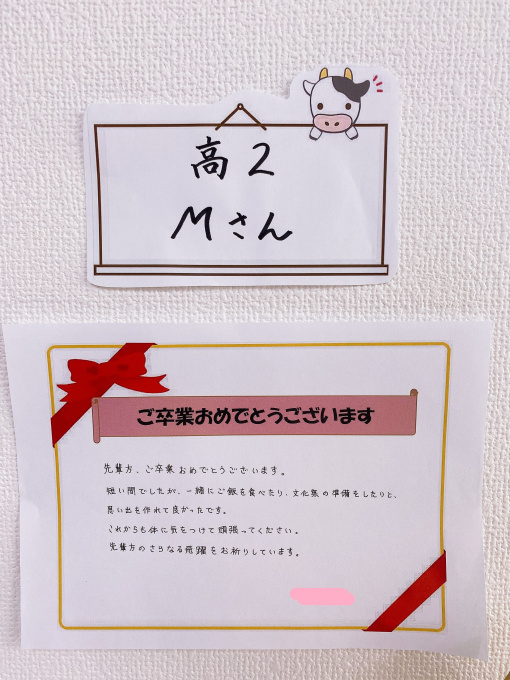 高2
Mさん
ご卒業おめでとうございます
先輩方、ご卒業おめでとうございます。
短い間でしたが、一緒にご飯を食べたり、文化祭の準備をしたりと、
思い出を作れて良かったです。
これからも体に気をつけて頑張ってください。
先輩方のさらなる飛躍をお祈りしています。